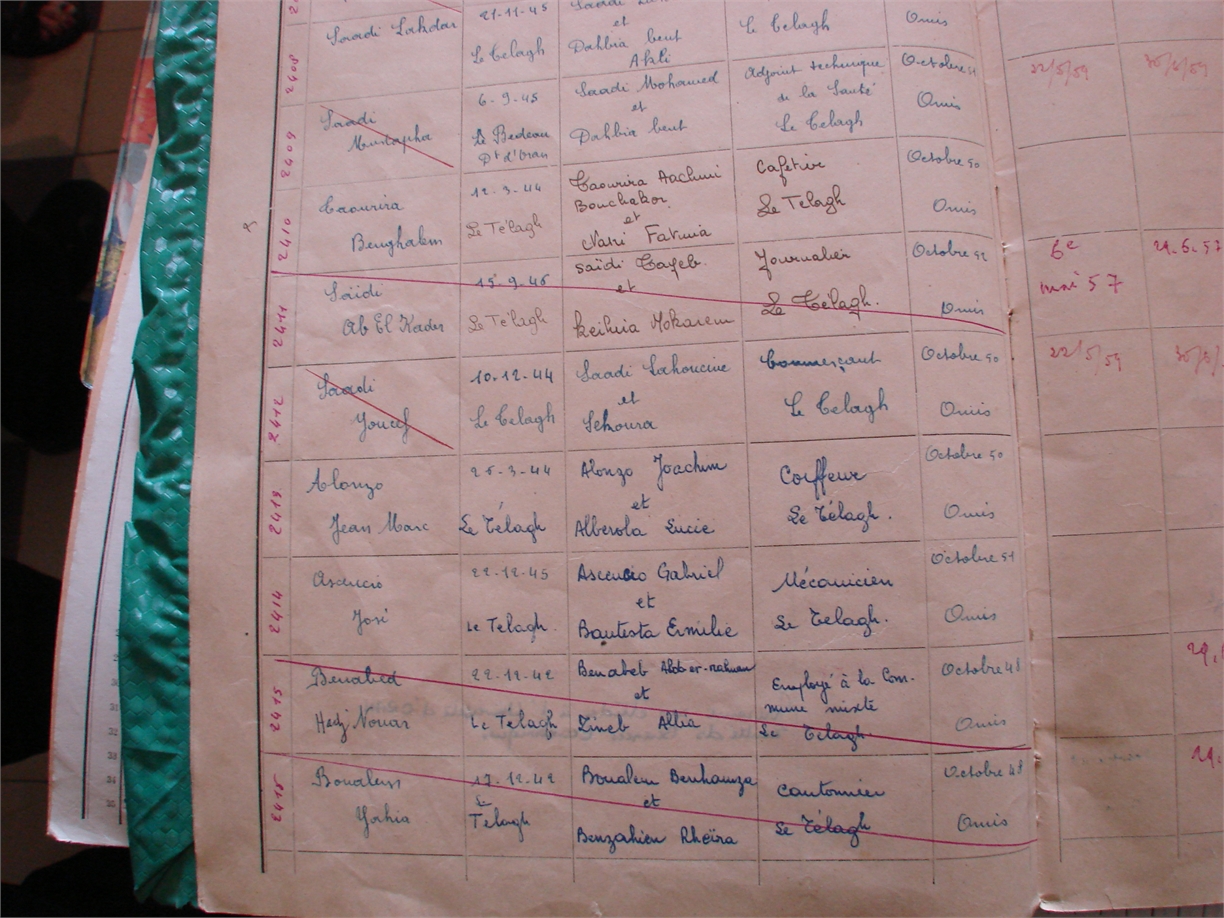 Saadi Lahdar
21-11-45
Le Télagh
et
Dahbia bent
Akli
Le Telagh
Omis
2408
Saadi
Mustapha
6-9-45
Le Bedeau
Dt d'Oran
Saadi Mohamed
et
Dahbia bent
Adjoint technique
de la Santé
Le Telagh
Octobre 51
Omis
22/5/59
30/6/59
2409
Taourira
Benghalem
12-3-44
Le Télagh
Taourira Aachmi
Bouchakor
et
Nasri Fatma
Cafetier
Le Telagh
Octobre 50
Omis
2410
Saïdi
Ab El Kader
15-9-46
Le Télagh
Saïdi Tayeb
et
Keihia Mokarem
Journalier
Le Télagh.
Octobre 52
Omis
6e
mai 57
29.6.57
2411
Saadi
Youcef
10-12-44
Le Telagh
Saadi Lahoucine
et
Sekoura
Commerçant
Le Telagh
Octobre 50
Omis
22/5/59
2412
Alonzo
Jean Marc
25-3-44
Le Télagh
Alonzo Joachim
et
Alberola Lucie
Coiffeur
Le Télagh.
Octobre 50
Omis
2413
Ascencio
José
22-12-45
Le Telagh.
Ascencio Gabriel
et
Bautista Emilie
Mécanicien
Le Telagh.
Octobre 51
Omis
2414
Benabed
Hadj Nouar
22-12-42
Le Telagh
Benabed Abd-er-rahman
et
Zineb Allia
Employé à la Com-
mune mixte
Le Telagh.
Octobre 48
Omis
2415
Boualem
Yahia
17-12-42
Le
Telagh
Boualem Benhamza
et
Benzahien Kheïra
Cantonnier
Le Télagh
Octobre 48
Omis